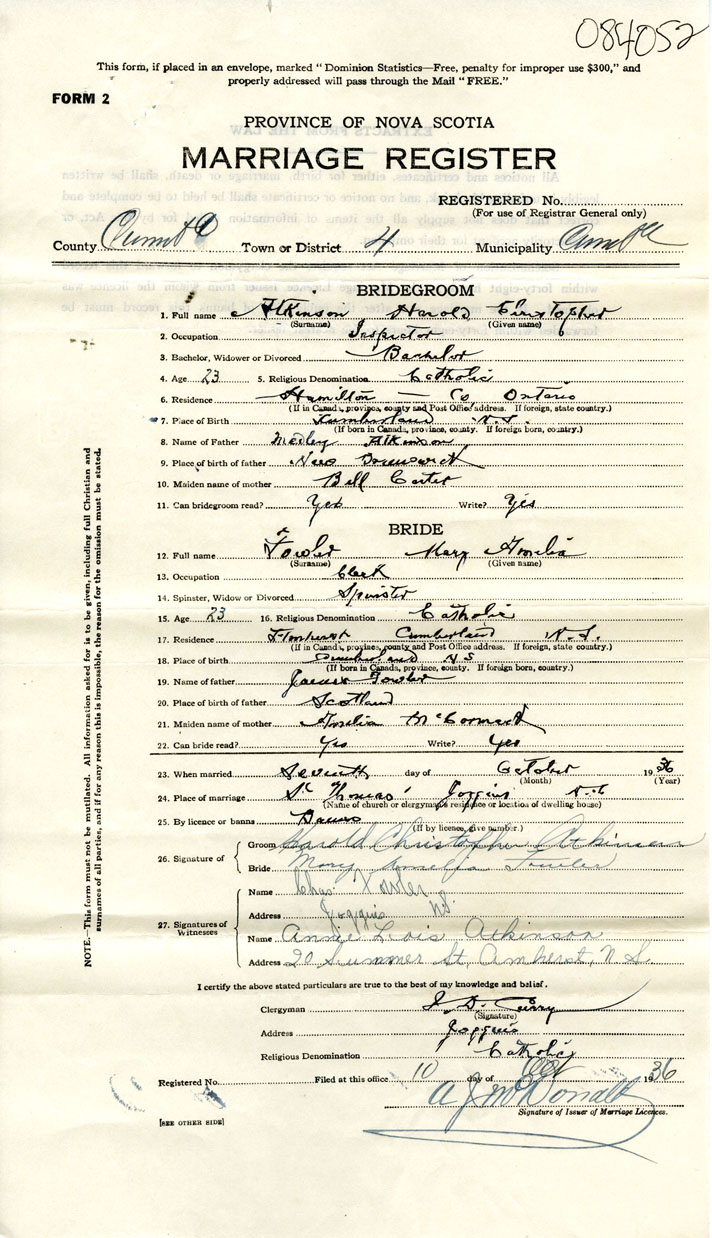 084052
This form, if placed in an envelope, marked "Dominion Statistics—Free, penalty for improper use $300," and
properly addressed will pass through the Mail "FREE."
FORM 2
PROVINCE OF NOVA SCOTIA
MARRIAGE REGISTER
REGISTERED No.
(For use of Registrar General only)
County Town or District 4 Municipality
BRIDEGROOM
1. Full name Atkinson Harold Christopher
(Surname) (Given name)
2. Occupation Inspector
3. Bachelor, Widower or Divorced Bachelor
4. Age 23 5. Religious Denomination Catholic
6. Residence Hamilton — Co Ontario
(If in Canada, province, county and Post Office address. If foreign, state country.)
7. Place of Birth Cumberland N.S.
(If born in Canada, province, county. If foreign born, country.)
8. Name of Father Medley Atkinson
9. Place of birth of father New Brunswick
10. Maiden name of mother Bell Carter
11. Can bridegroom read? Yes Write? Yes
BRIDE
12. Full name Fowler Mary Amelia
(Surname) (Given name)
13. Occupation Clerk
14. Spinster, Widow or Divorced Spinster
15. Age 23 16. Religious Denomination Catholic
17. Residence Amherst Cumberland N.S.
(If in Canada, province, county and Post Office address. If foreign, state country.)
18. Place of birth Cumberland N S
(If born in Canada, province, county. If foreign born, country.)
19. Name of father James Fowler
20. Place of birth of father Scotland
21. Maiden name of mother Amelia McCormack
22. Can bride read? Yes Write? Yes
23. When married Seventh day of October 1936
(Month) (Year)
24. Place of marriage St Thomas' Joggins N.S
(Name of church or clergyman's residence or location of dwelling house)
25. By licence or banns Banns
(If by licence, give number.)
26. Signature of
Groom Harold Christopher Atkinson
Bride Mary Amelia Fowler
27. Signatures of Witnesses
Name Chas. Fowler
Address Joggins NS.
Name Annie Lois Atkinson
Address 20 Summer St, Amherst, N.S.
I certify the above stated particulars are true to the best of my knowledge and belief.
Clergyman J. D. Curry
(Signature)
Address Joggins
Religious Denomination Catholic
Registered No. Filed at this office 10 day of Oct 1936
A J McDonald
Signature of Issuer of Marriage Licences.
[SEE OTHER SIDE]
NOTE.—This form must not be mutilated. All information asked for is to be given, including full Christian and
surnames of all parties, and if for any reason this is impossible, the reason for the omission must be stated.